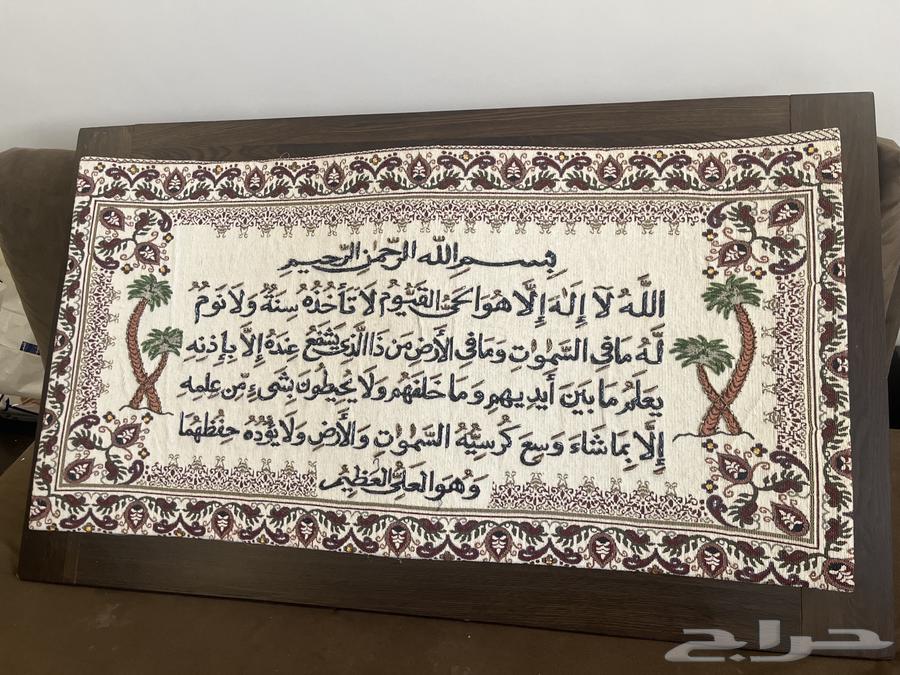 بِسمِ اللّه الرّحمٰن الرّحيم
اللَّهُ لَآ إِلَٰهَ إِلَّا هُوَ الحَىُّ القَيُّومُ لَا تَأخُذُهُ سِنَةٌ وَلَا نَومٌ
لَّهُ مَا فِى السَّمٰوٰتِ وَمَا فِى الأَرضِ مَن ذَا الَّذِى يَشفَعُ عِندَهُ إِلَّا بِإِذنِهِ
يَعلَمُ مَا بَينَ أَيدِيهِم وَمَا خَلفَهُم وَلَا يُحِيطُونَ بِشَىءٍ مِّن عِلمِهِ
إِلَّا بِمَا شَاءَ وَسِعَ كُرسِيُّهُ السَّمٰوٰتِ وَالأَرضَ وَلَا يَؤُدُهُ حِفظُهُمَا
وَهُوَ العَلِىُّ العَظِيمُ
حراج